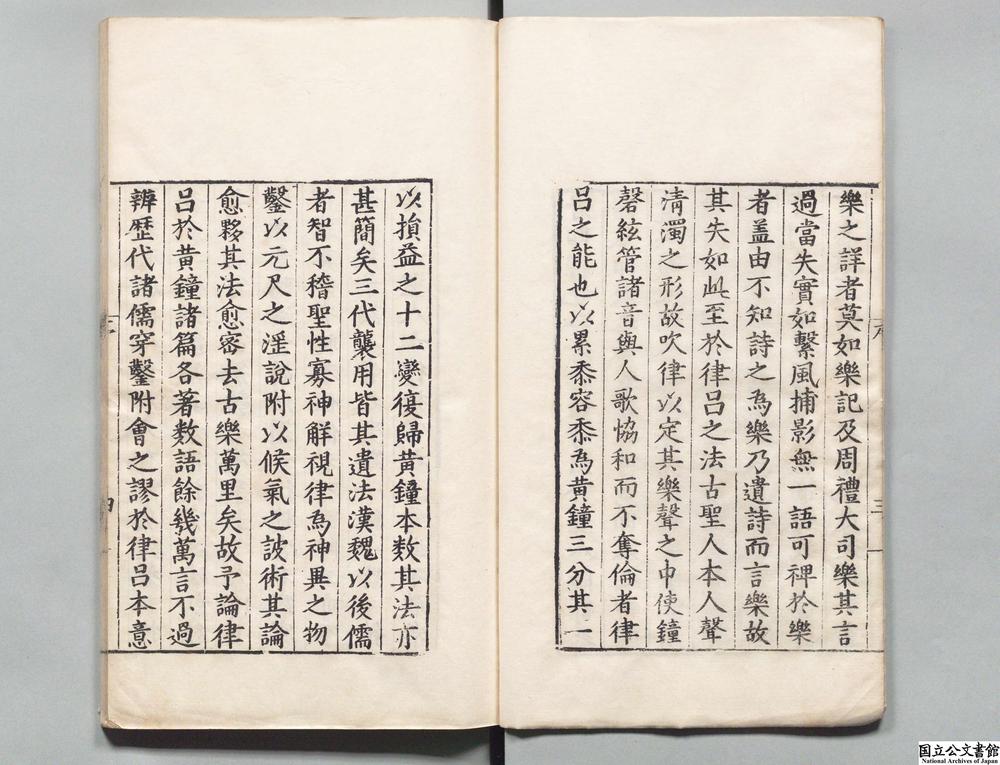 樂之詳者莫如樂記及周禮大司樂其言
過當失實如繫風捕影無一語可裨於樂
者盖由不知詩之為樂乃遺詩而言樂故
其失如此至於律呂之法古聖人本人聲
清濁之形故吹律以定其樂聲之中使鐘
磬絃管諸音與人歌恊和而不奪倫者律
呂之能也以累黍容黍為黄鐘三分其一
以損益之十二變復歸黄鐘本数其法亦
甚簡矣三代襲用皆其遺法漢魏以後儒
者智不稽聖性寡神解視律為神異之物
鑿以元尺之滛說附以候氣之詖術其論
愈夥其法愈密去古樂萬里矣故予論律
呂於黄鐘諸篇各著数語餘幾萬言不過
辨歴代諸儒穿鑿附會之謬於律呂本意
国立公文書館
National Archives of Japan